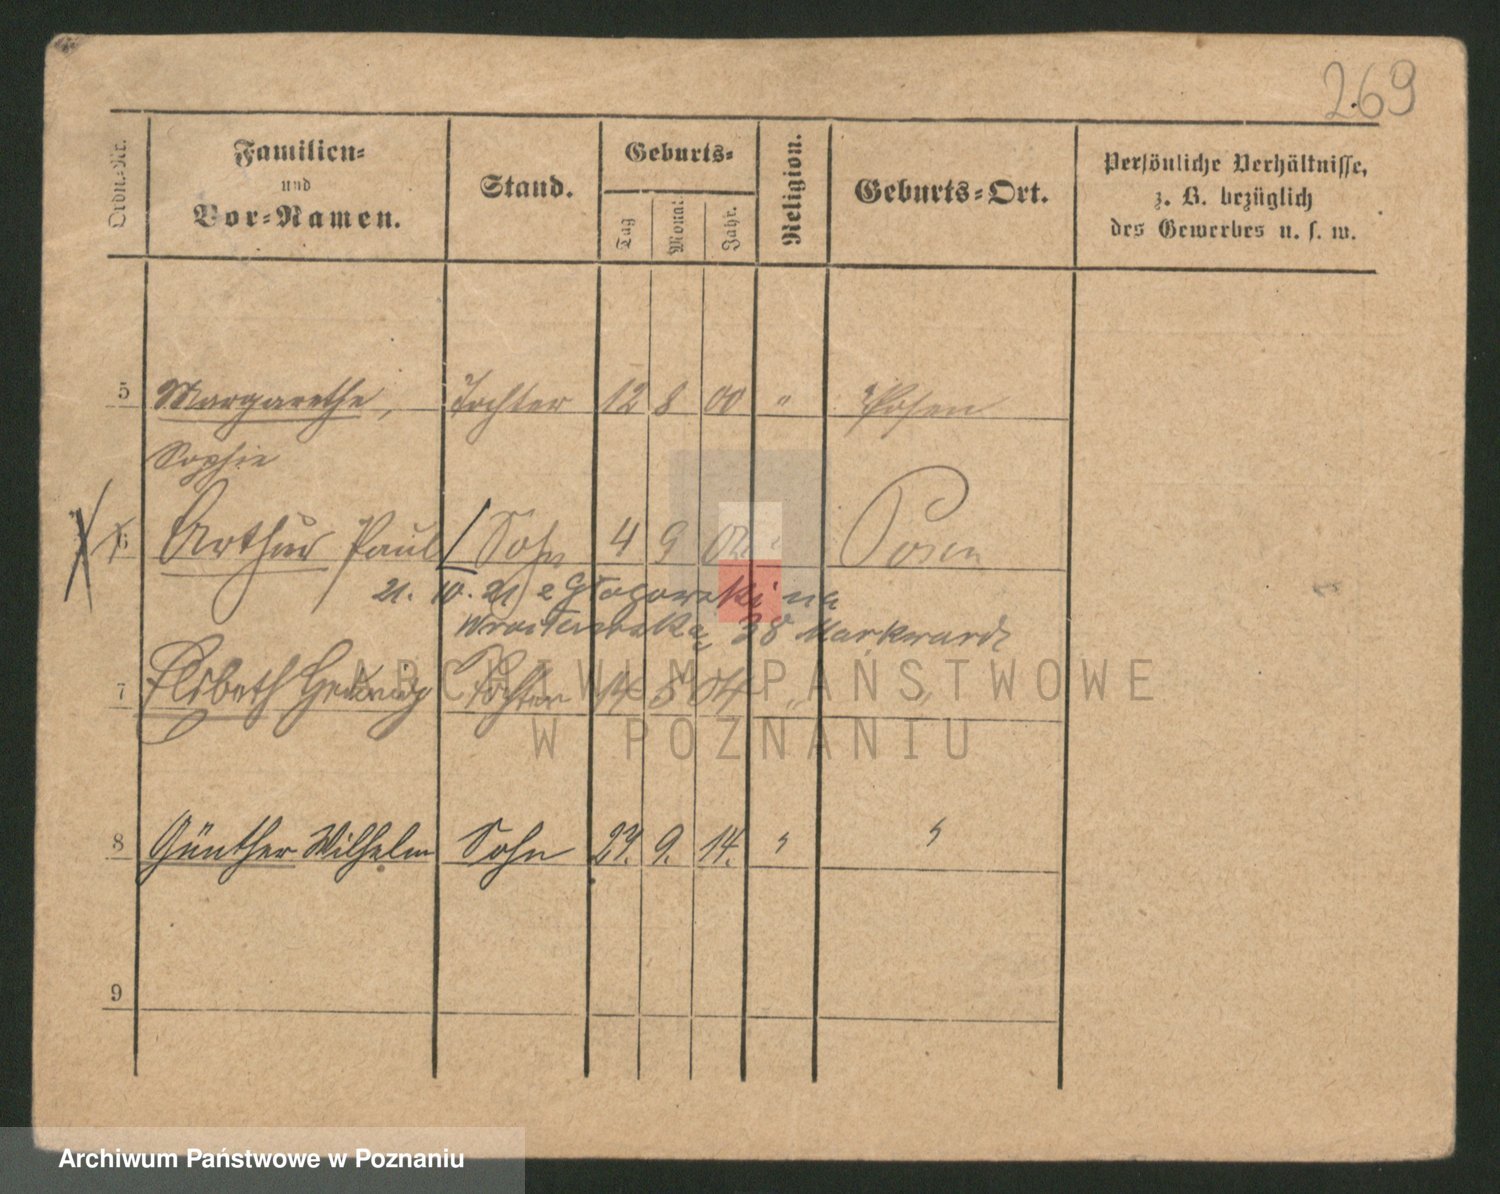 269
Ordn.-Nr.
Familien-
und
Vor-Namen.
Stand.
Geburts-
Tag
Monat
Jahr.
Religion.
Geburts-Ort.
Persönliche Verhältnisse,
z. B. bezüglich
des Gewerbes u. s. w.
5 Margarethe, Tochter 12 8 00 " Posen
Sophie
6 Arthur Paul Sohn 4 9 02 " Posen
21. 10. 21 z Głogowski na
38 Markwardt
7 Elsbeth Hedwig Tochter 14 5 04 " "
8 Günther Wilhelm Sohn 27. 9. 14. " "
9
ARCHIWUM PAŃSTWOWE
W POZNANIU
Archiwum Państwowe w Poznaniu